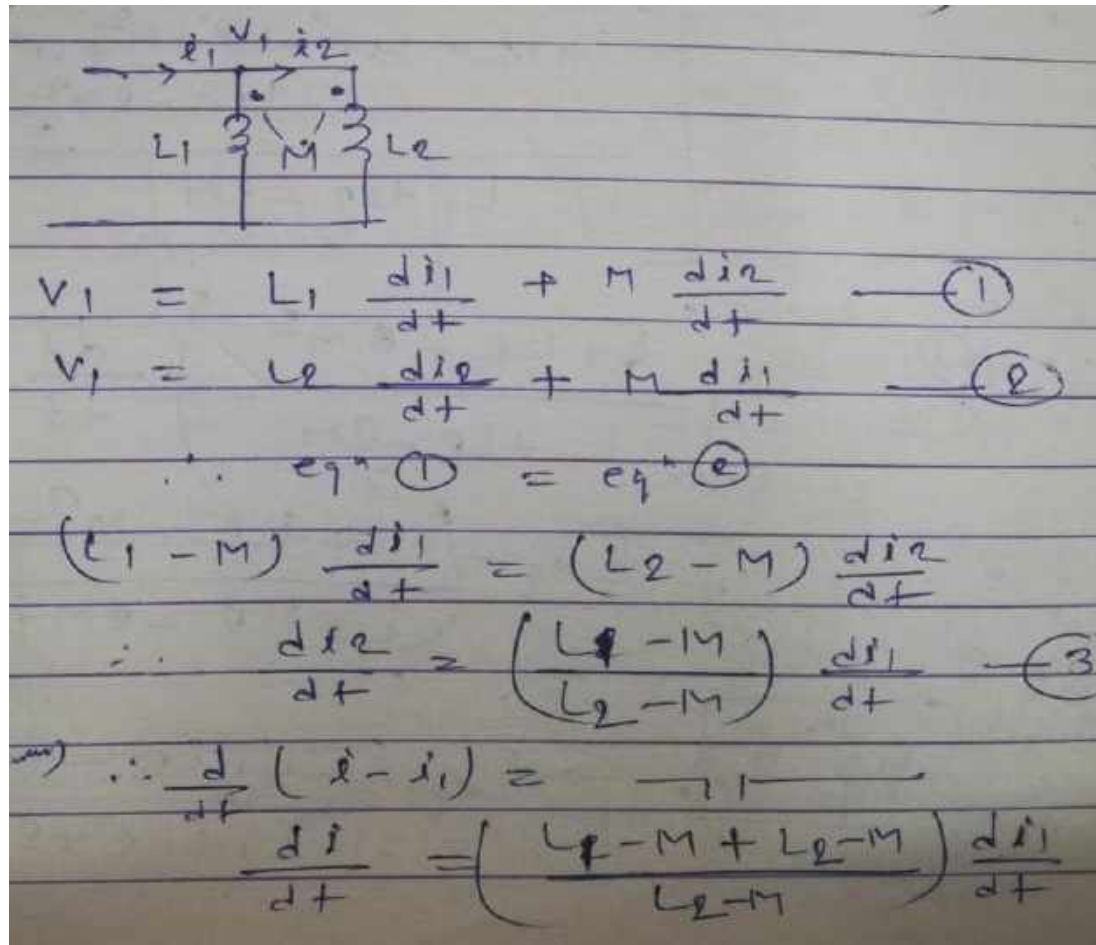 i1 V1 i2
L1 M L2
V1 = L1 di1/dt + M di2/dt —— ①
V1 = L2 di2/dt + M di1/dt —— ②
∴ eqⁿ ① = eqⁿ ②
(L1 - M) di1/dt = (L2 - M) di2/dt
∴ di2/dt = (L1 - M / L2 - M) di1/dt — ③
∴ d/dt (i - i1) = —11—
di/dt = (L1 - M + L2 - M / L2 - M) di1/dt